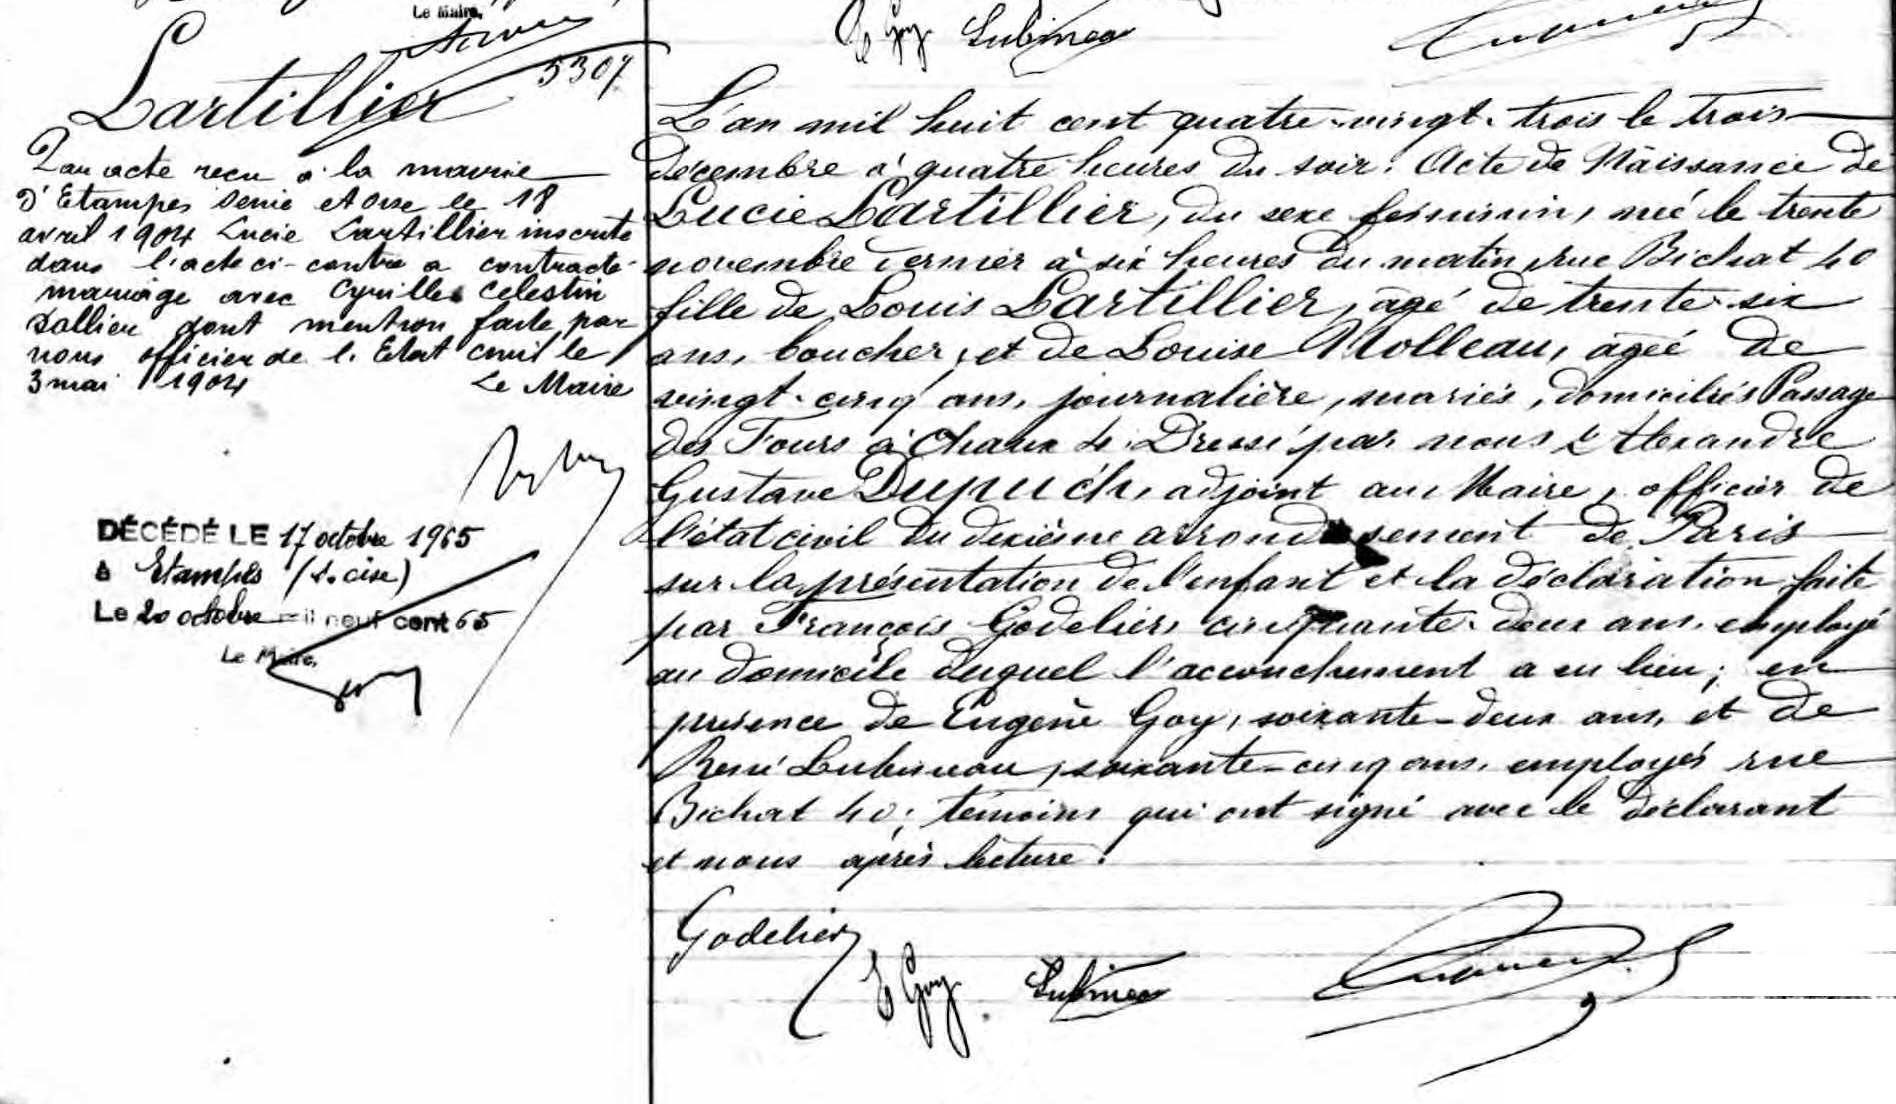 Le Maire,
E Goy Lubineau
5307
Lartillier
Par acte recu à la mairie
d'Etampes Seine et Oise le 18
avril 1904 Lucie Lartillier inscrite
dans l'acte ci-contre a contracté
mariage avec Cyrille Celestin
Dallier dont mention faite par
nous officier de l'Etat civil le
3 mai 1904 Le Maire
DÉCÉDÉ LE 17 octobre 1965
à Etampes (S. oise)
Le 20 octobre mil neuf cent 65
Le Maire,
L'an mil huit cent quatre-vingt-trois le trois
décembre à quatre heures du soir. Acte de Naissance de
Lucie Lartillier, du sexe féminin, née le trente
novembre dernier à six heures du matin, rue Bichat 40
fille de Louis Lartillier, âgé de trente-six
ans, boucher, et de Louise Molleau, âgée de
vingt-cinq ans, journalière, mariés, domiciliés Passage
des Fours à Chaux 4. Dressé par nous Alexandre
Gustave Dupuch, adjoint au Maire, officier de
l'état civil du dixième arrondissement de Paris
sur la présentation de l'enfant et la déclaration faite
par François Godelier, cinquante-deux ans, employé
au domicile duquel l'accouchement a eu lieu; en
présence de Eugène Goy, soixante-deux ans, et de
René Lubineau, soixante-cinq ans, employés rue
Bichat 40; témoins qui ont signé avec le déclarant
et nous après lecture.
Godelier
E Goy Lubineau